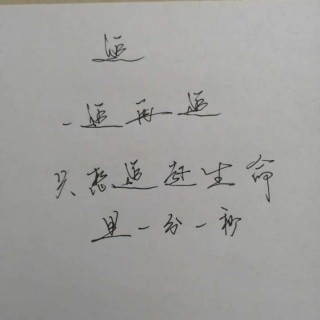 追
一追再追
只想追赶生命
里一分一秒